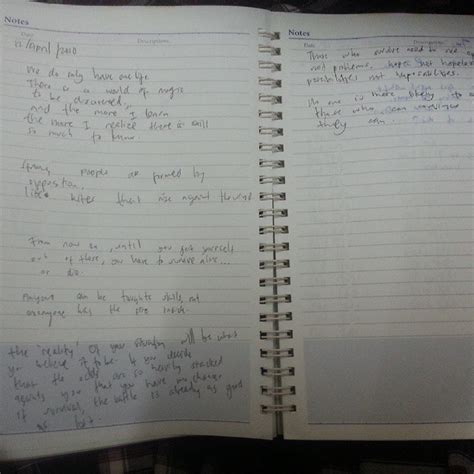 Notes
Date
Description
12/April/2010
We do only have one life.
There is a world of magic
to be discovered,
and the more I learn
the more I realize there is still
so much to know.
Strong people are formed by
opposition,
like kites that rise against the wind
From now on, until you get yourself
out of there, you have to survive alive...
or die.
Anyone can be taught skills, not
everyone has the right
the 'reality' of your situation will be what
you believe it to be. If you decide
that the odds are so heavily stacked
against you that you have no chance
of survival, the battle is already as good
as lost
Notes
Date
Description
Those who survive need to
and patience, hope not
possibilities not impossibilities.
No one is more likely to
those who
they can.